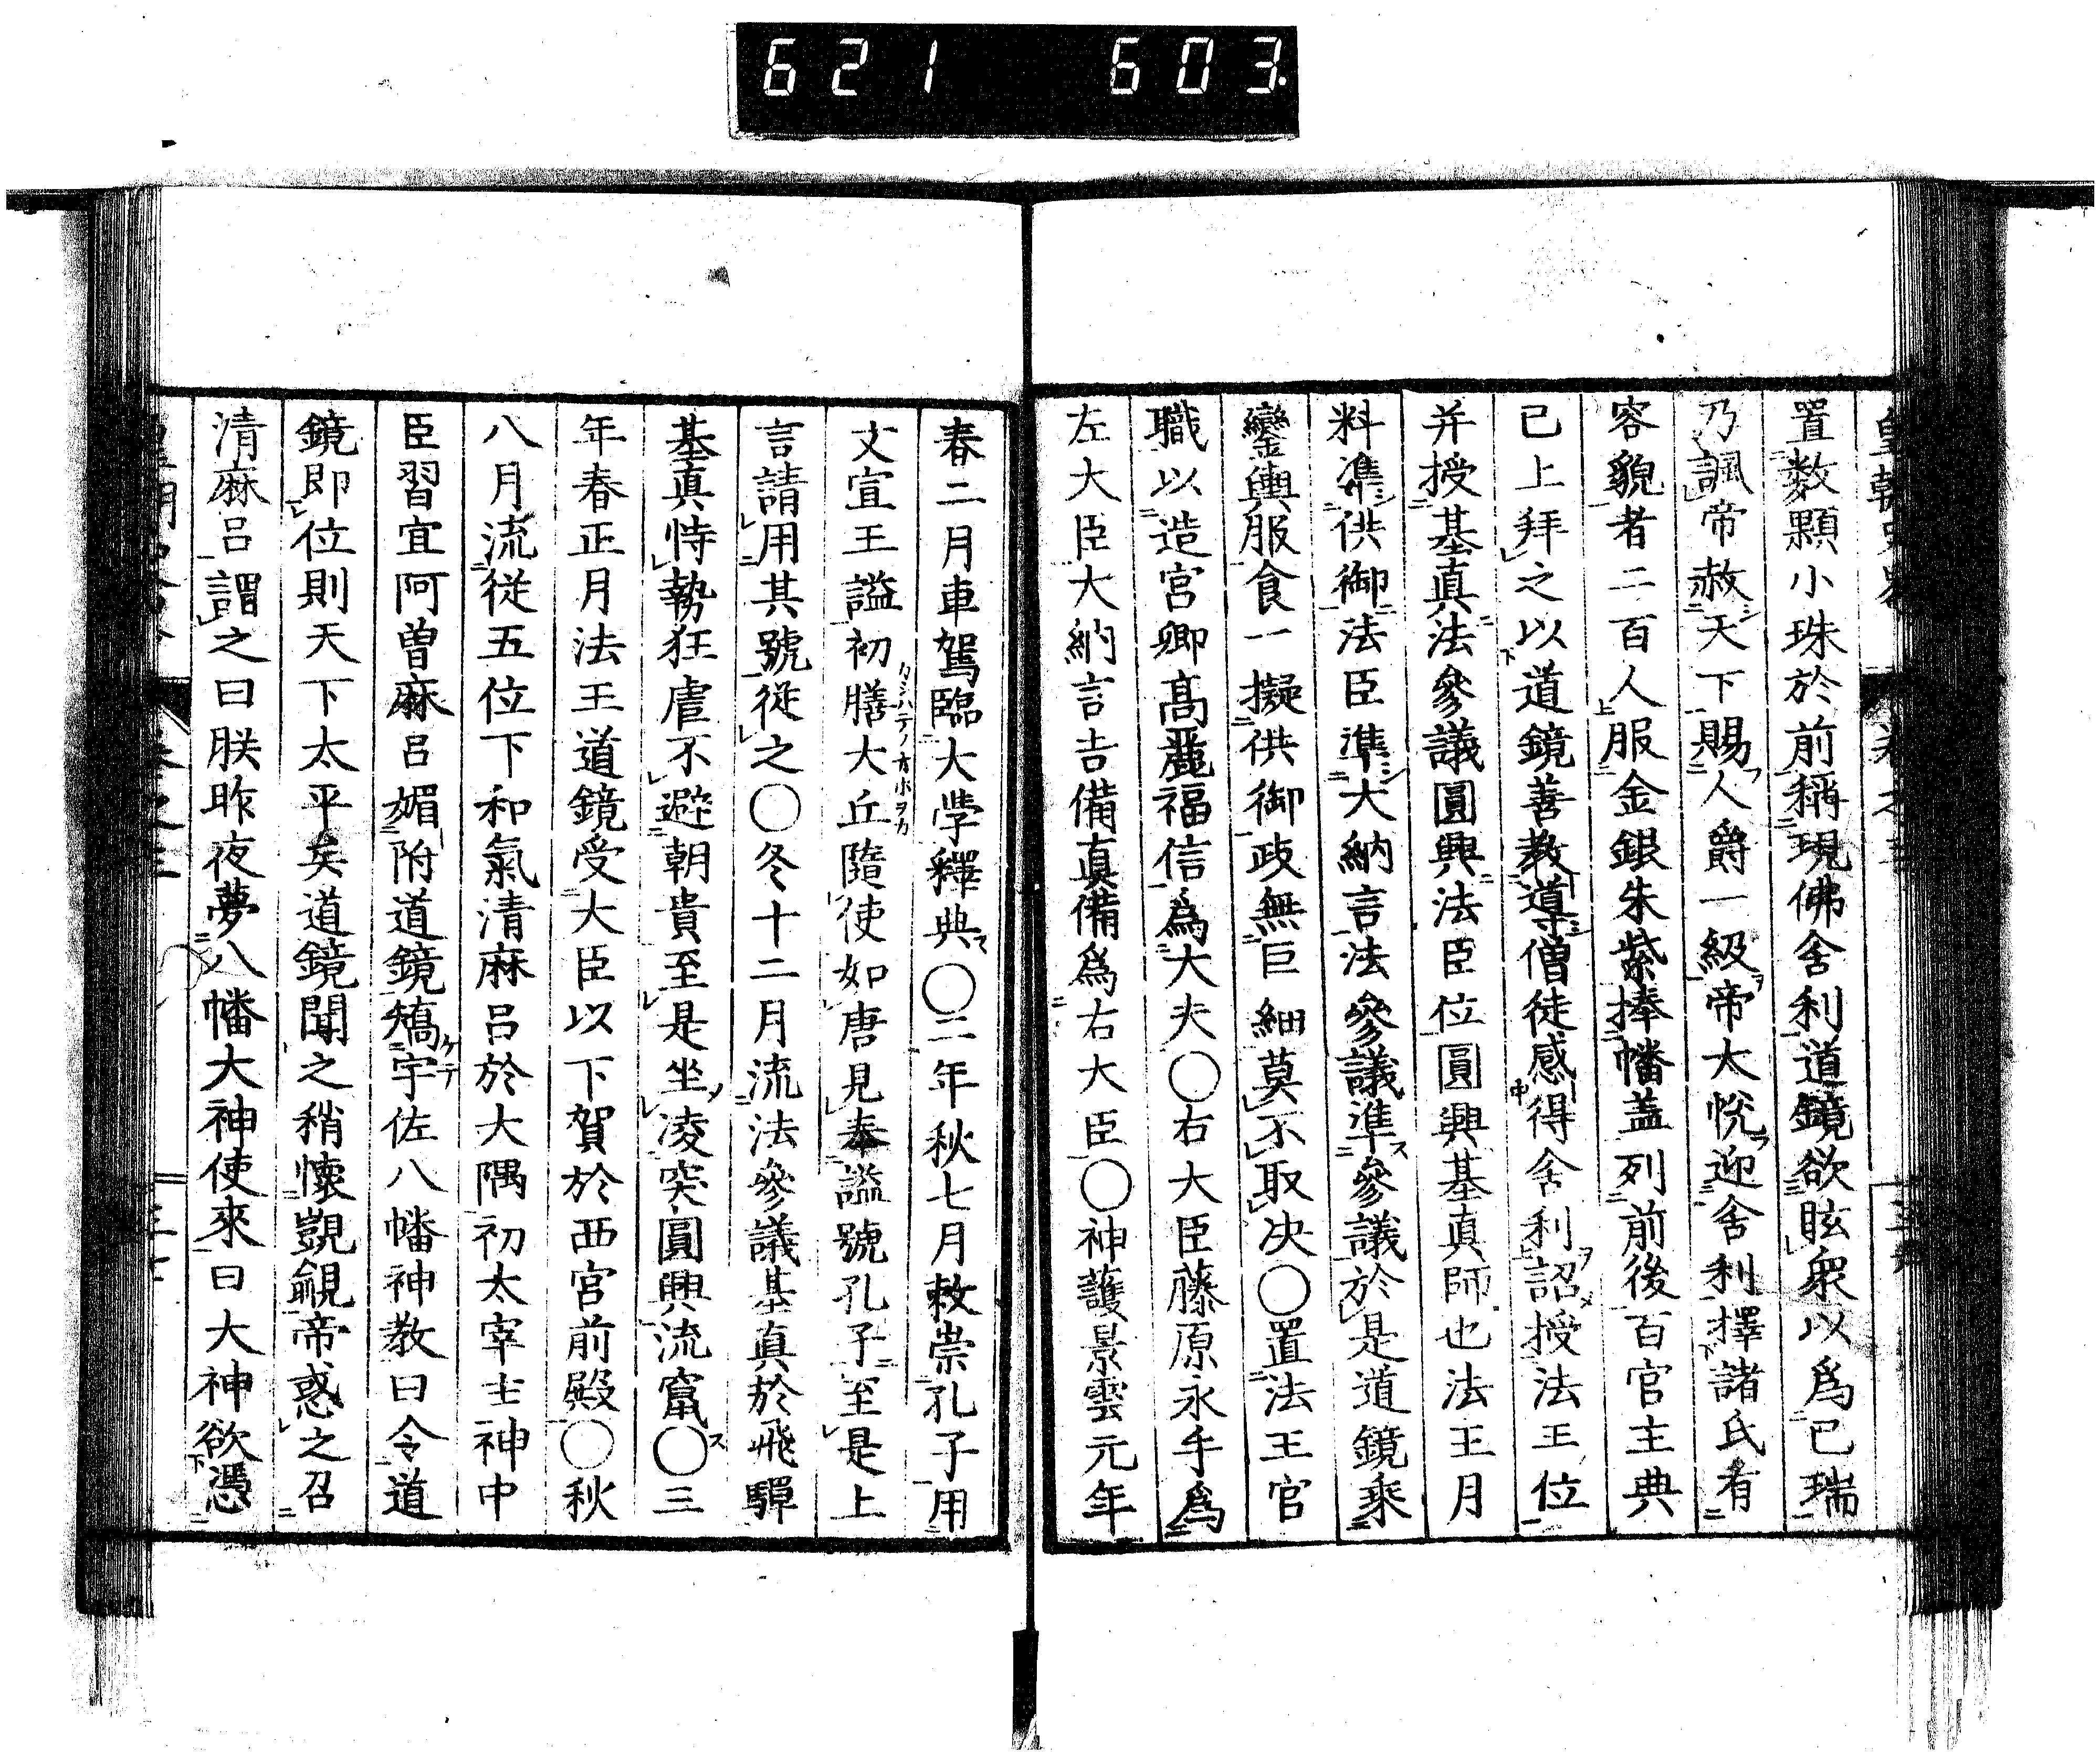 621 603
置數顆小珠於前稱現佛舍利道鏡欲眩衆以爲已瑞
乃諷帝赦天下賜人爵一級帝大悅迎舍利擇諸氏有
容貌者二百人服金銀朱紫捧幡蓋列前後百官主典
已上拜之以道鏡善教導僧徒感得舍利詔授法王位
并授基真法參議圓興法臣位圓興基真師也法王月
料準供御法臣準大納言法參議準參議於是道鏡乘
鑾輿服食一擬供御政無巨細莫不取決〇置法王官
職以造宮卿高麗福信爲大夫〇右大臣藤原永手爲
左大臣大納言吉備真備爲右大臣〇神護景雲元年
春二月車駕臨大學釋典〇二年秋七月敕崇孔子用
文宣王謚初膳大丘隨使如唐見奉謚號孔子至是上
言請用其號從之〇冬十二月流法參議基真於飛驒
基真恃勢狂虐不避朝貴至是坐凌突圓興流竄〇三
年春正月法王道鏡受大臣以下賀於西宮前殿〇秋
八月流從五位下和氣清麻呂於大隅初太宰主神中
臣習宜阿曽麻呂媚附道鏡矯宇佐八幡神教曰令道
鏡即位則天下太平矣道鏡聞之稍懷覬覦帝惑之召
清麻呂謂之曰朕昨夜夢八幡大神使來曰大神欲憑